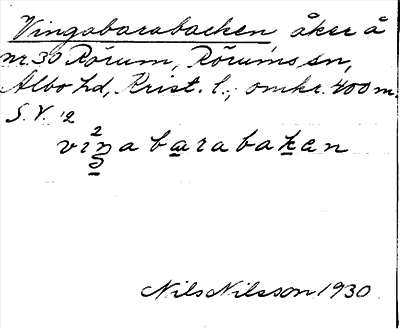 Vingabarabacken, åker å
nr. 30 Rörum, Rörums sn,
Albo hd, Krist. l.; omkr. 400 m.
S.V.
viŋabarabakan
Nils Nilsson 1930